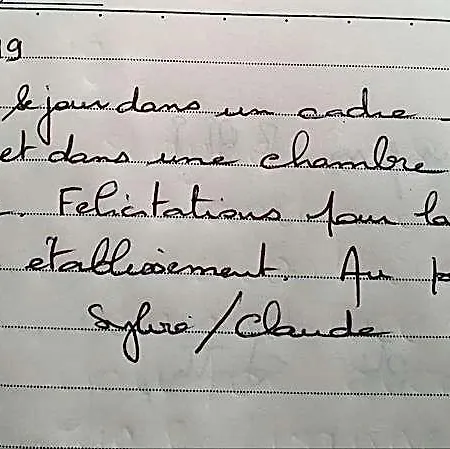 19
séjour dans un cadre
et dans une chambre
. Felicitations pour la
établissement. Au p
Sylvie / Claude